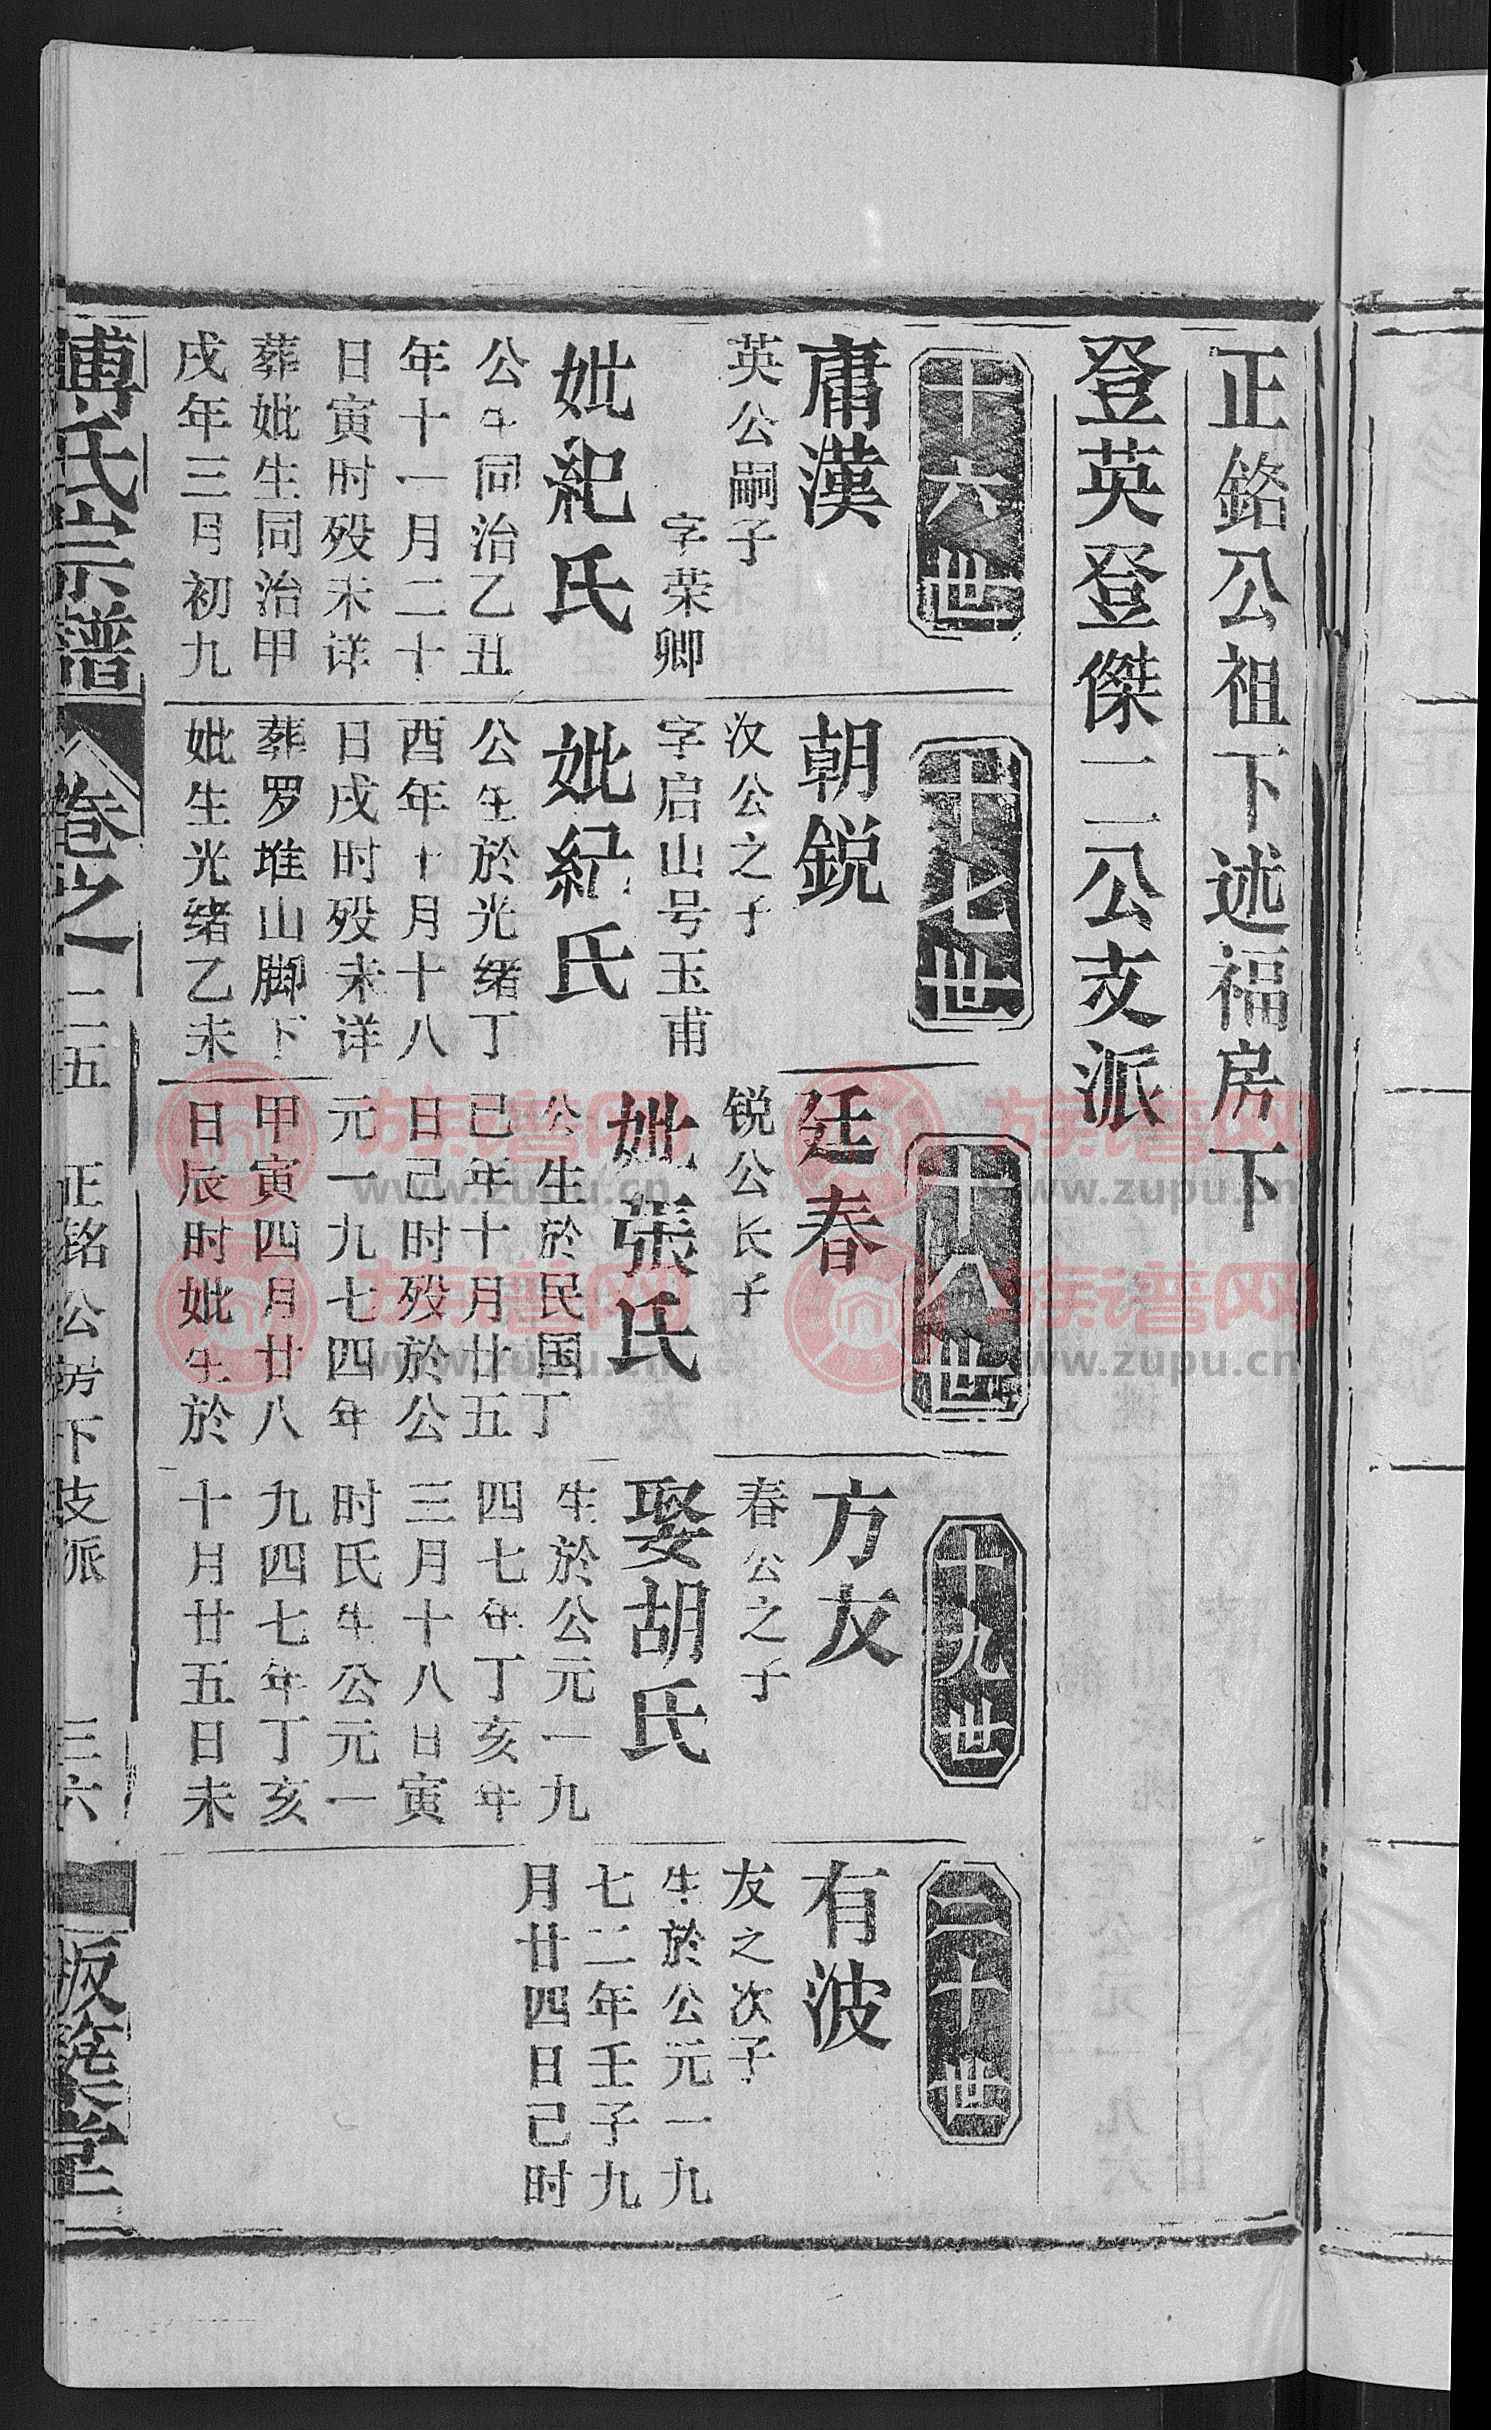 正銘公祖下述福房下
登英登傑二公支派
十六世
庸漢
英公嗣子
字荣卿
妣紀氏
公生同治乙丑
年十一月二十
日寅时殁未详
葬妣生同治甲
戌年三月初九
十七世
朝鋭
汉公之子
字启山号玉甫
妣紀氏
公生於光绪丁
酉年十月十八
日戌时殁未详
葬罗堆山脚下
妣生光绪乙未
十八世
廷春
锐公长子
妣張氏
公生於民国丁
已年十月廿五
日己时殁於公
元一九七四年
甲寅四月廿八
日辰时妣生於
十九世
方友
春公之子
娶胡氏
生於公元一九
四七年丁亥年
三月十八日寅
时氏生公元一
九四七年丁亥
十月廿五日未
二十世
有波
友之次子
生於公元一九
七二年壬子九
月廿四日己时
傅氏宗譜
卷之一
二五
正铭公房下支派
三六
版築堂
族谱网
www.zupu.cn
族谱网
www.zupu.cn
族谱网
www.zupu.cn
族谱网
www.zupu.cn